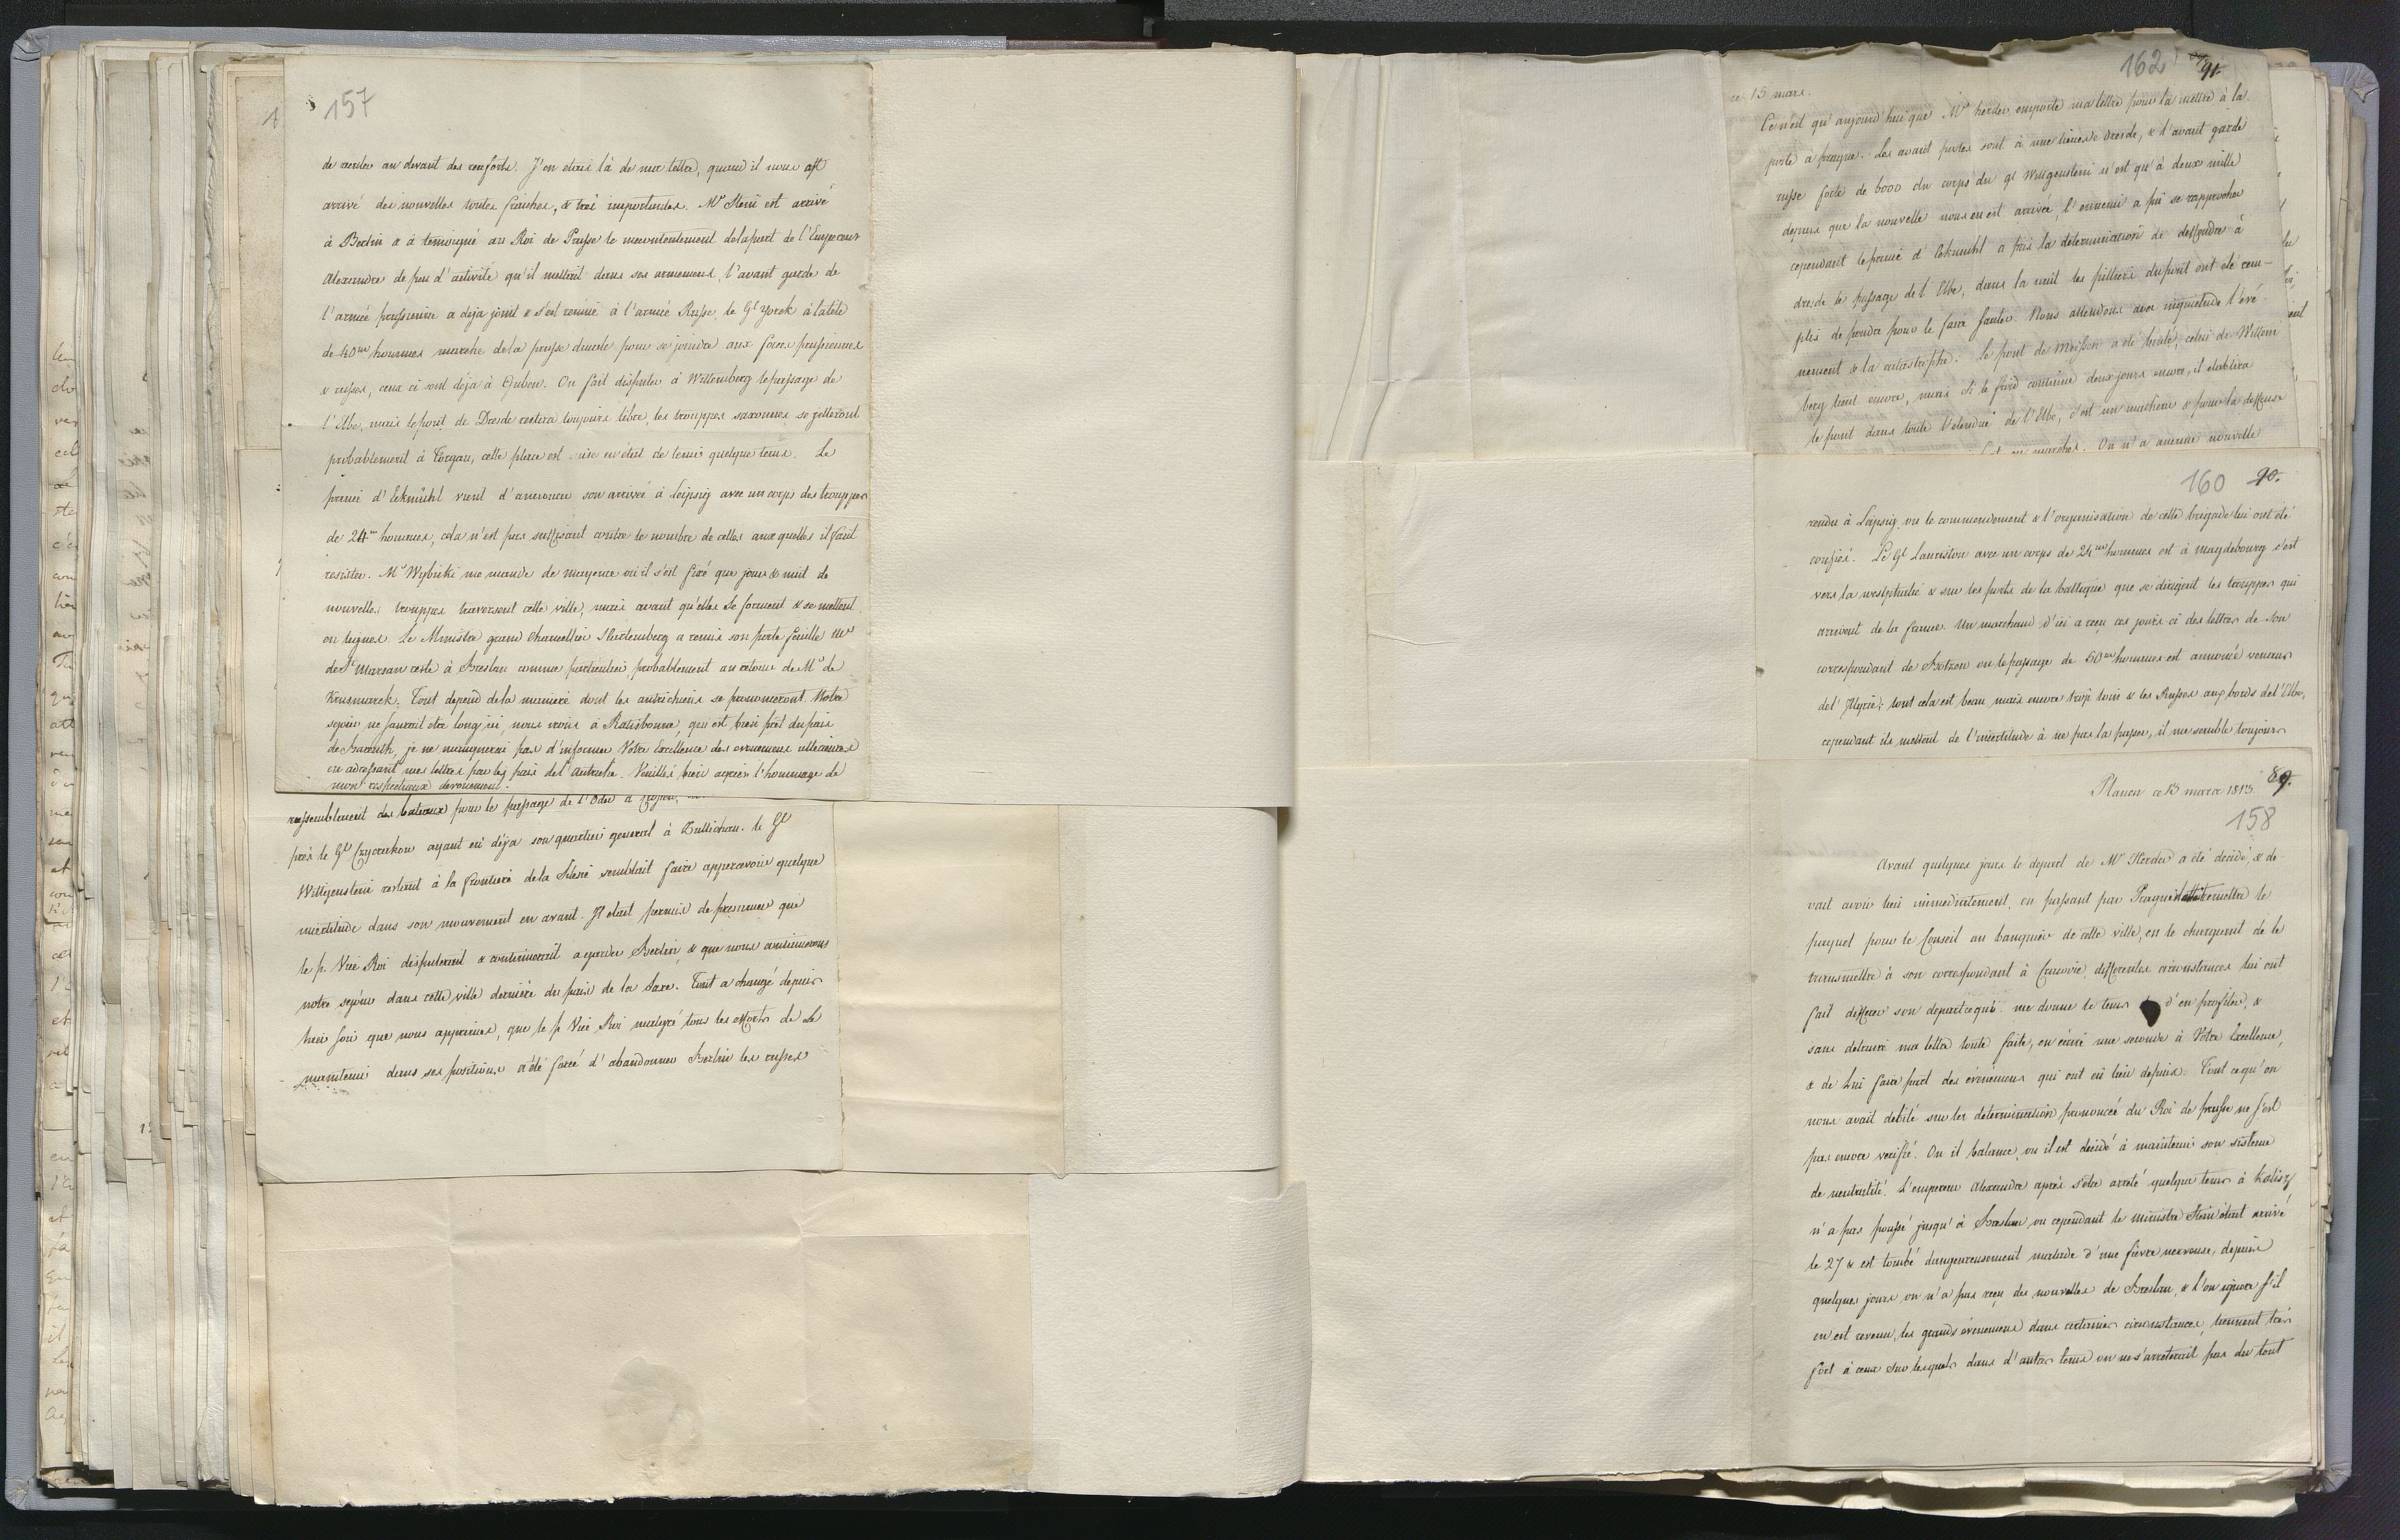 157
de reculer au devant des renforts. J'en etais là de ma lettre, quand il nous est
arrivé des nouvelles toutes fraiches, & trés importantes. Mr Stein est arrivé
à Berlin & à temoigné au Roi de Prusse le mecontentement dela part de l'Empereur
Alexandre de peu d'activité qu'il mettait dans ses armemens, l'avant garde de
l'armée prussienne a deja joint & s'est reunie à l'armée Russe, le Gl Yorck à latête
de 40m hommes marche dela prusse ducale pour se joindre aux forces prussiennes
& russes, ceux ci sont déja à Guben. On fait disputer à Wittemberg lepassage de
l'Elbe, mais lepont de Dresde restera toujours libre, les trouppes saxonnes se jetteront
probablement à Torgau, cette place est mise en état de tenir quelque tems. Le
prince d'Eckmühl vient d'annoncer son arrivée à Leipsig avec un corps des trouppes
de 24m hommes, cela n'est pas suffisant contre le nombre de celles auxquelles il faut
resister. Mr Wybicki me mande de mayence où il s'est fixé que jour & nuit de
nouvelles trouppes traversent cette ville, mais avant qu'elles se forment & se mettent
en lignes. Le Ministre grand Chancellier Hardemberg a remis son porte feuille Mr
de St Marsan reste à Breslau comme particulier, probablement au retour de Mr de
Krusmarck. Tout depend dela maniere dont les autrichiens se prononceront. Notre
sejour ne saurait etre long ici, nous irons à Ratisbonne, qui est bien prêt du païs
de Bareuth, je ne manquerai pas d'informer Votre Excellence des evenemens ulterieures
en adressant mes lettres par les païs del'Autriche. Veuillés bien agréer l'hommage de
mon respectueux devouement.
rassemblement des bateaux pour le passage de l'Oder a
près le Gl Czyczakow ayant eû déja son quartier general à Zullichau. le Gl
Wittgenstein restant à la frontiere dela Silesie semblait faire appercevoir quelque
incertitude dans son mouvement en avant. Il etait permis de presumer que
le p. Vice Roi disputerait & continuerait a garder Berlin, & que nous continuerons
notre sejour dans cette ville derniére du païs de la Saxe. Tout a changé depuis
hier soir que nous apprimes, que le p. Vice Roi malgré tous les efforts de Se
maintenir dans ses positions a été forcé d'abandonner Berlin les russes
162 91.
ce 15 mars.
Ce n'est qu'aujourd'hui que Mr herder emporte ma lettre pour la mettre à la
poste à prague. Les avant postes sont à une lieue de Dresde, & l'avant garde
russe forte de 6000 du corps du gl Wittgenstein n'est qu'à deux mille
depuis que la nouvelle nous en est arrivée, l'ennemi a pû se rapprocher
cependant le prince d'Eckmuhl a pris la determination de deffendre à
dresde le passage de l'Elbe, dans la nuit les pilliers du pont ont été rem-
plis de poudre pour le faire sauter. Nous attendons avec inquietude l'éve-
nement & la catastrophe: le pont de Meissen a été brulé, celui de Wittem
berg tient encore, mais si le froid continue deux jours encore, il etablira
le pont dans toute l'etendue de l'Elbe, c'est un malheur & pour la deffense
On n'a aucune nouvelle
160 90.
rendu à Leipsig, ou le commendement & l'organisation de cette brigade lui ont été
confiés. Le Gl Lauriston avec un corps de 24m hommes est à magdebourg c'est
vers la westphalie & sur les ports de la baltique que se dirigent les trouppes qui
arrivent de la france. Un marchand d'ici a reçu ces jours-ci des lettres de son
correspondant de Botzen ou lepassage de 50m hommes est annoncé venans
del'Illyrie; tout cela est beau mais encore trop loin & les Russes aux bords del'Elbe,
cependant ils mettent de l'incertitude à ne pas la passer, il me semble toujours
Plauen ce 13 mars 1813 89.
158
Avant quelques jours le depart de Mr Herder a été decidé, & de-
vait avoir lieu immediatement, en passant par Prague remettre le
paquet pour le Conseil au banquier de cette ville, en le chargeant de le
transmettre à son correspondant à Cracovie differentes circonstances lui ont
fait differer son depart ce qui me donne le tems d'en profiter, &
sans detruire ma lettre toute faite, en écrire une seconde à Votre Excellence,
& de Lui faire part des évenemens qui ont eû lieu depuis. Tout ce qu'on
nous avait debité sur la determination prononcée du Roi de prusse ne s'est
pas encore verifié. Ou il balance, ou il est decidé à maintenir son sistême
de neutralité. L'empereur Alexandre après s'être arreté quelque tems à Kalisz
n'a pas poussé jusqu'à Breslau ou cependant le ministre Stein était arrivé
le 27 & est tombé dangereusement malade d'une fièvre nerveuse, depuis
quelques jours on n'a pas reçu des nouvelles de Breslau, & l'on ignore s'il
en est revenu, les grands évenemens dans certaines circonstances, tiennent très
fort à ceux sur lesquels dans d'autres tems on ne s'arreterait pas du tout